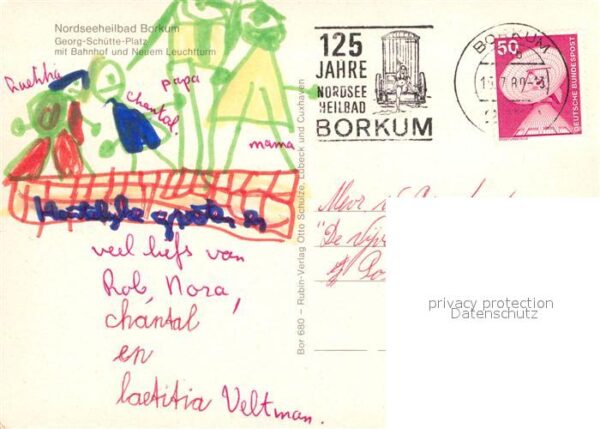 Nordseeheilbad Borkum
Georg-Schütte-Platz
mit Bahnhof und Neuem Leuchtturm
papa
chantal.
mama
Hartelijke groeten en
veel liefs van
Rob, Nora,
chántal
en
laetitia Veltman.
Bor 680 – Rubin-Verlag Otto Schulze, Lübeck und Cuxhaven
125
JAHRE
NORDSEE
HEILBAD
BORKUM
BORKUM
50
DEUTSCHE BUNDESPOST
"De
privacy protection
Datenschutz